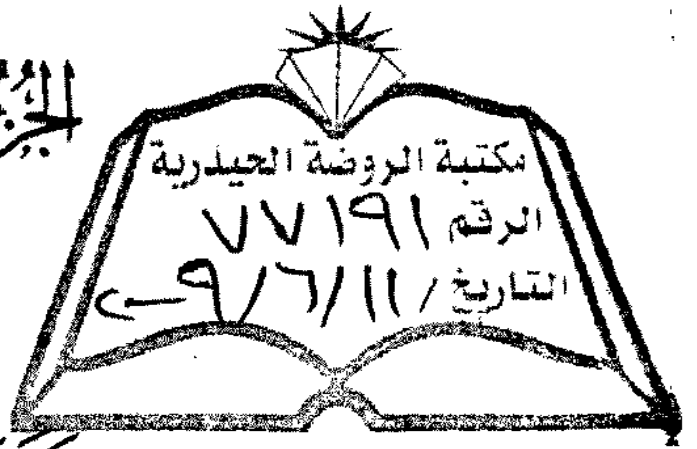 مكتبة الروضة الحيدرية
الرقم ٧٧١٩١
التاريخ / ١١ / ٦ / ٩